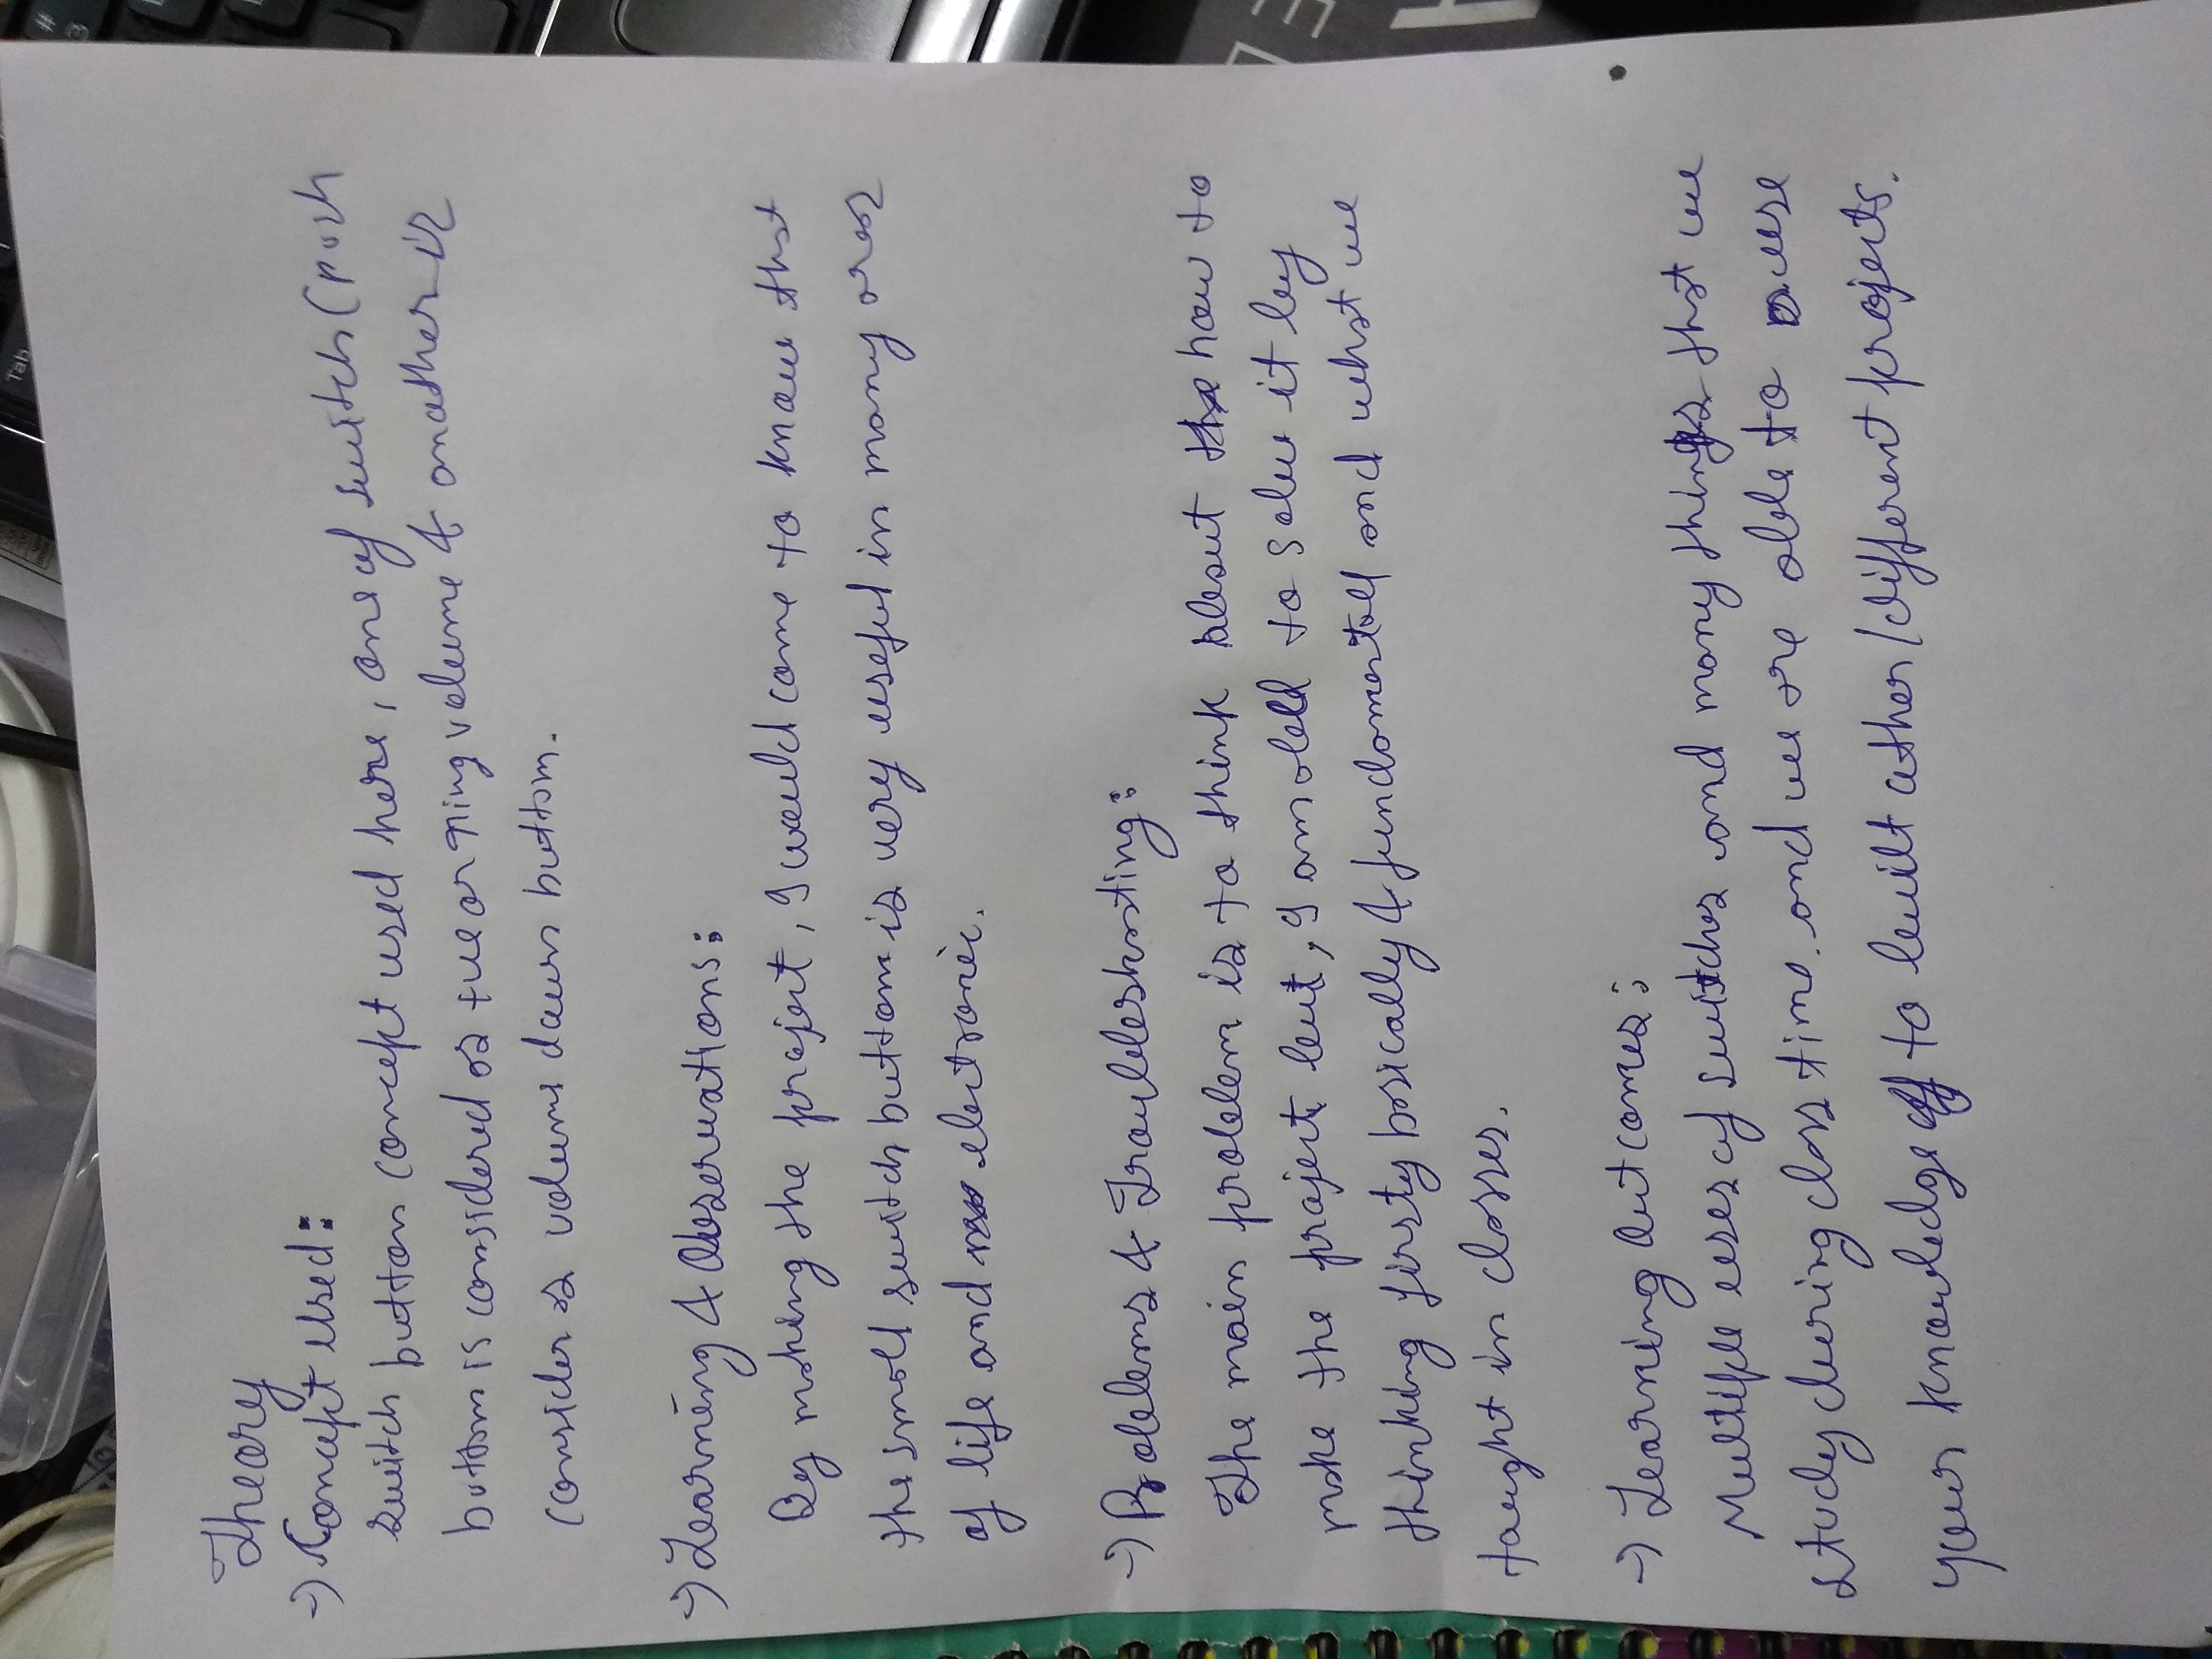 Theory
→ Concept Used:
Switch button concept used here, one of switch (push
button is considered as volume & another is
consider as volume down button.
→ Learning & Observations:
By making the project, I would come to know that
the small switch button is very useful in many areas
of life and electronic.
→ Problems & Troubleshooting:
The main problem is to think about how to
make the project but, I am able to solve it by
thinking firsty basically & fundamentall and what we
taught in classes.
→ Learning Outcomes:
Multiple uses of switches and many things that we
study during class time. and we are able to use
your knowledge to built other/different projects.
Tab
#
3